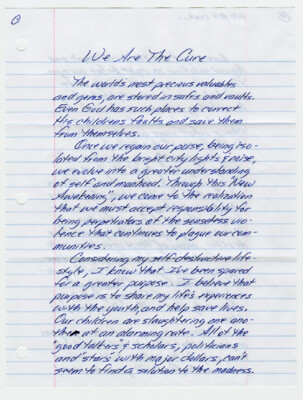 We Are The Cure
The worlds most precious valuables
and gems, are stored in safes and vaults.
Even God has such places to correct
His childrens faults and save them
from themselves.
Once we regain our poise, being iso-
lated from the bright city lights & noise,
we evolve into a greater understanding
of self and manhood. Through this "New
Awakening", we come to the realization
that we must accept responsibility for
being perpetrators of the senseless vio-
lence that continues to plague our com-
munities.
Considering my self-destructive life-
style, I know that I've been spared
for a greater purpose. I believe that
purpose is to share my life's experiences
with the youth, and help save lives.
Our children are slaughtering one ano-
ther at an alarming rate. All of the
"good talkers" & scholars, politicians
and "stars" with major dollars, can't
seem to find a solution to the madness.